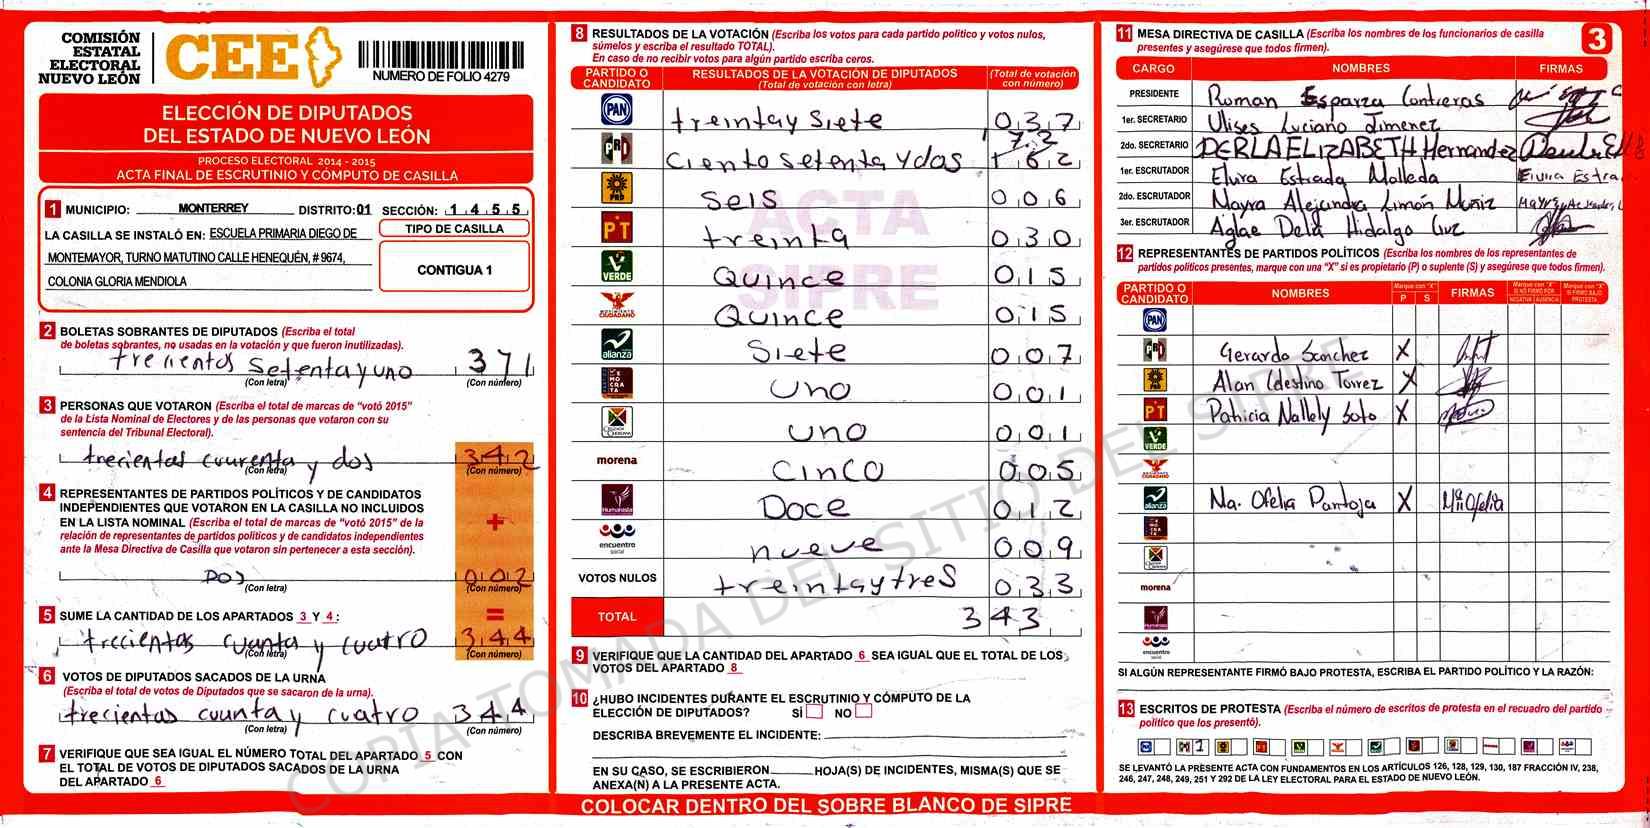 COMISIÓN
ESTATAL
ELECTORAL
NUEVO LEÓN
CEE
NUMERO DE FOLIO 4279
ELECCIÓN DE DIPUTADOS
DEL ESTADO DE NUEVO LEÓN
PROCESO ELECTORAL 2014 - 2015
ACTA FINAL DE ESCRUTINIO Y CÓMPUTO DE CASILLA
1 MUNICIPIO: MONTERREY DISTRITO: 01 SECCIÓN: 1 4 5 5
LA CASILLA SE INSTALÓ EN: ESCUELA PRIMARIA DIEGO DE
MONTEMAYOR, TURNO MATUTINO CALLE HENEQUÉN, # 9674,
COLONIA GLORIA MENDIOLA
TIPO DE CASILLA
CONTIGUA 1
2 BOLETAS SOBRANTES DE DIPUTADOS (Escriba el total
de boletas sobrantes, no usadas en la votación y que fueron inutilizadas).
trecientos setenta y uno 371
(Con letra) (Con número)
3 PERSONAS QUE VOTARON (Escriba el total de marcas de "votó 2015"
de la Lista Nominal de Electores y de las personas que votaron con su
sentencia del Tribunal Electoral).
trecientas cuurenta y dos 342
(Con letra) (Con número)
4 REPRESENTANTES DE PARTIDOS POLÍTICOS Y DE CANDIDATOS
INDEPENDIENTES QUE VOTARON EN LA CASILLA NO INCLUIDOS
EN LA LISTA NOMINAL (Escriba el total de marcas de "votó 2015" de la
relación de representantes de partidos políticos y de candidatos independientes
ante la Mesa Directiva de Casilla que votaron sin pertenecer a esta sección).
+
DOS 002
(Con letra) (Con número)
=
5 SUME LA CANTIDAD DE LOS APARTADOS 3 Y 4 :
trecientas cuanta y cuatro 344
(Con letra) (Con número)
6 VOTOS DE DIPUTADOS SACADOS DE LA URNA
(Escriba el total de votos de Diputados que se sacaron de la urna).
trecientas cuunta y cuatro 344
(Con letra) (Con número)
7 VERIFIQUE QUE SEA IGUAL EL NÚMERO TOTAL DEL APARTADO 5 CON
EL TOTAL DE VOTOS DE DIPUTADOS SACADOS DE LA URNA
DEL APARTADO 6
8 RESULTADOS DE LA VOTACIÓN (Escriba los votos para cada partido político y votos nulos,
súmelos y escriba el resultado TOTAL).
En caso de no recibir votos para algún partido escriba ceros.
PARTIDO O CANDIDATO RESULTADOS DE LA VOTACIÓN DE DIPUTADOS (Total de votación con letra) (Total de votación con número)
PAN treinta y siete 037
PRI ciento setenta y dos 162 172
PRD seis 006
PT treinta 030
VERDE Quince 015
MOVIMIENTO CIUDADANO Quince 015
alianza Siete 007
DEMOCRATA uno 001
CRUZADA CIUDADANA uno 001
morena CINCO 005
Humanista Doce 012
encuentro social nueve 009
VOTOS NULOS treinta y tres 033
TOTAL 343
9 VERIFIQUE QUE LA CANTIDAD DEL APARTADO 6 SEA IGUAL QUE EL TOTAL DE LOS
VOTOS DEL APARTADO 8
10 ¿HUBO INCIDENTES DURANTE EL ESCRUTINIO Y CÓMPUTO DE LA
ELECCIÓN DE DIPUTADOS? SÍ NO
DESCRIBA BREVEMENTE EL INCIDENTE:
EN SU CASO, SE ESCRIBIERON HOJA(S) DE INCIDENTES, MISMA(S) QUE SE
ANEXA(N) A LA PRESENTE ACTA.
COLOCAR DENTRO DEL SOBRE BLANCO DE SIPRE
ACTA
SIPRE
COPIA TOMADA DEL SITIO DEL SIPRE
3
11 MESA DIRECTIVA DE CASILLA (Escriba los nombres de los funcionarios de casilla
presentes y asegúrese que todos firmen).
CARGO NOMBRES FIRMAS
PRESIDENTE Roman Esparza Contreras
1er. SECRETARIO Ulises Luciano Jimenez
2do. SECRETARIO PERLA ELIZABETH Hernandez
1er. ESCRUTADOR Elvira Estrada Malleda Elvira Estra
2do. ESCRUTADOR Mayra Alejandra Limón Muñiz
3er. ESCRUTADOR Aglae Delia Hidalgo Cruz
12 REPRESENTANTES DE PARTIDOS POLÍTICOS (Escriba los nombres de los representantes de
partidos políticos presentes, marque con una "X" si es propietario (P) o suplente (S) y asegúrese que todos firmen).
PARTIDO O CANDIDATO NOMBRES Marque con "X" P S FIRMAS Marque con "X" SI NO FIRMÓ POR NEGATIVA AUSENCIA Marque con "X" SI FIRMÓ BAJO PROTESTA
PAN
PRI Gerardo Sanchez X
PRD Alan Celestino Torrez X
PT Patricia Nallely Soto X
VERDE
MOVIMIENTO CIUDADANO
alianza Ma. Ofelia Pantoja X Ma Ofelia
morena
Humanista
encuentro social
SI ALGÚN REPRESENTANTE FIRMÓ BAJO PROTESTA, ESCRIBA EL PARTIDO POLÍTICO Y LA RAZÓN:
13 ESCRITOS DE PROTESTA (Escriba el número de escritos de protesta en el recuadro del partido
político que los presentó).
1
SE LEVANTÓ LA PRESENTE ACTA CON FUNDAMENTOS EN LOS ARTÍCULOS 126, 128, 129, 130, 187 FRACCIÓN IV, 238,
246, 247, 248, 249, 251 Y 292 DE LA LEY ELECTORAL PARA EL ESTADO DE NUEVO LEÓN.